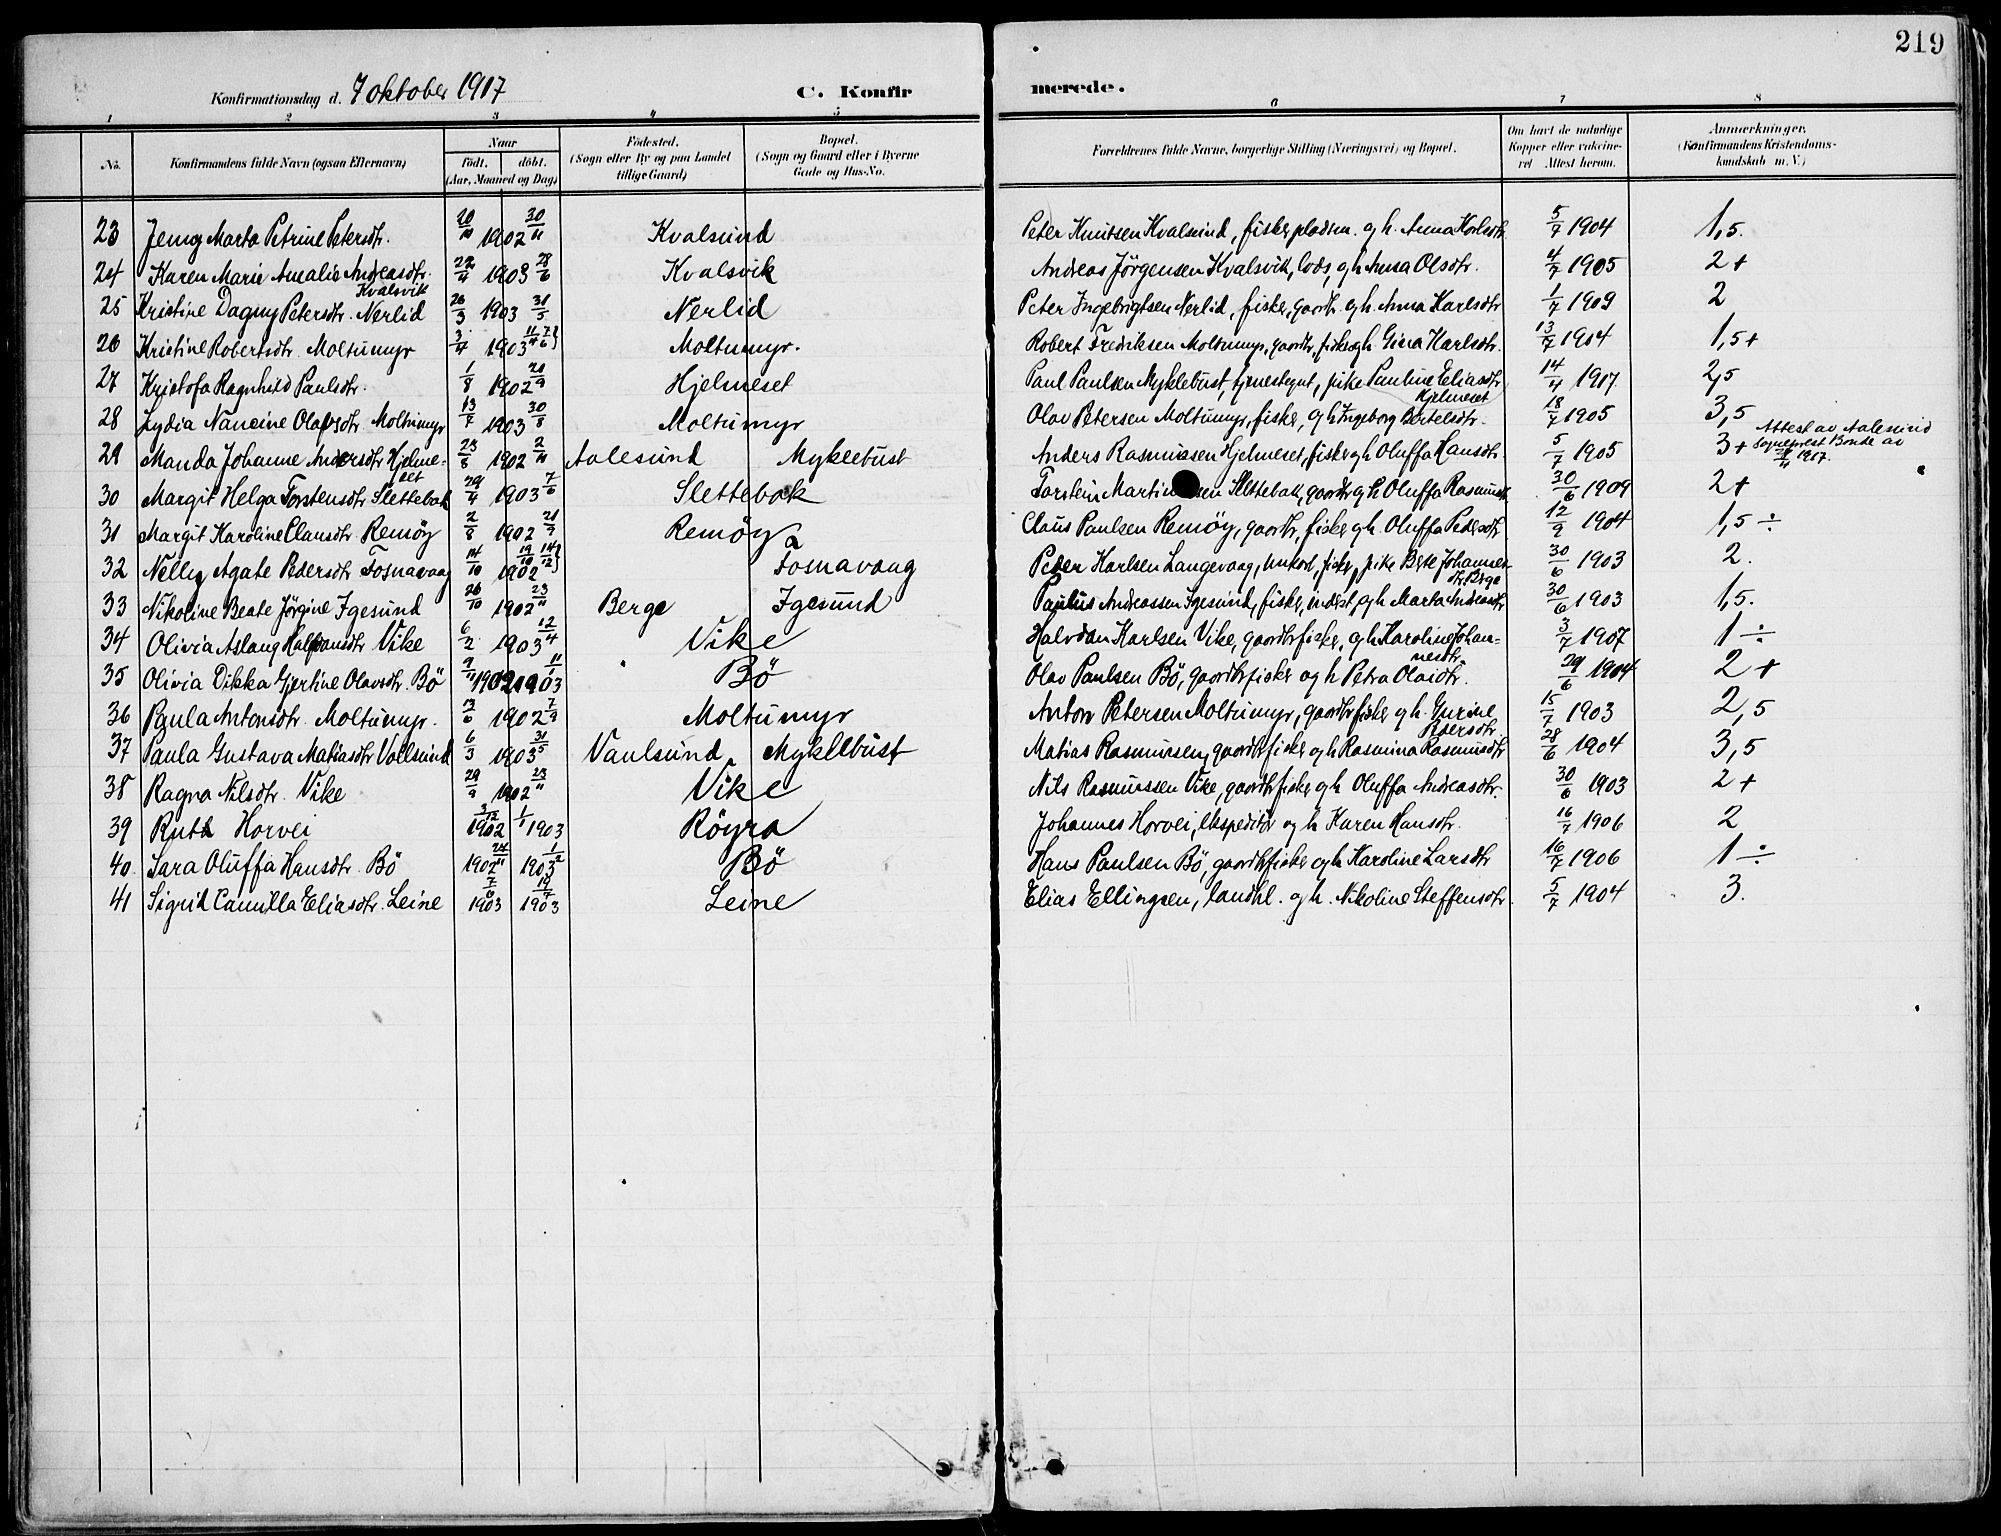 219
Konfirmationsdag d. 7 oktober 1917 C. Konfir merede.
1 2 3 4 5 6 7 8
No. Konfirmandens fulde Navn (ogsaa Efternavn) Naar födt. döbt. (Aar, Maaned og Dag) Födested. (Sogn eller By og paa Landet tillige Gaard) Bopæl. (Sogn og Gaard eller i Byerne Gade og Hus-No. Forældrenes fulde Navne, borgerlige Stilling (Næringsvei) og Bopæl. Om havt de naturlige Kopper eller vakcineret Attest herom. Anmærkninger. (Konfirmandens Kristendomskundskab m. V.)
23 Jenny Marta Petrine Petersdtr. 20/10 1902 30/11 Kvalsund Peter Knutsen Kvalsund, fisker pladsm. og h. Anna Karlsdtr. 5/7 1904 1,5.
24 Karen Marie Amalie Andreasdtr. Kvalsvik 22/4 1903 28/6 Kvalsvik Andreas Jörgensen Kvalsvik, lods, og h Anna Olsdtr. 4/7 1905 2+
25 Kristine Dagny Petersdtr. Nerlid 26/3 1903 31/5 Nerlid Peter Ingebrigtsen Nerlid, fisker, gaardbr. og h. Anna Karlsdtr 1/7 1909 2
26 Kristine Robertsdtr. Moltumyr 3/4 1903 11/4 7/6} Moltumyr. Robert Fredriksen Moltumyr, gaardbr, fisker og h. Gina Karlsdtr. 13/7 1904 1,5+
27 Kristofa Ragnhild Paulsdtr. 1/8 1902 21/9 Hjelmeset Paul Paulsen Myklebust, tjenestegut, pike Pauline Eliasdtr Hjelmeset 14/4 1917 2,5
28 Lydia Nancine Olafsdtr. Moltumyr 13/7 1903 30/8 Moltumyr Olav Petersen Moltumyr, fisker, og h Ingeborg Bertelsdtr. 18/7 1905 3,5
29 Manda Johanne Andersdtr Hjelmeset 23/8 1902 2/11 Aalesund Myklebust Anders Rasmussen Hjelmeset, fisker og h Oluffa Hansdtr. 5/7 1905 3+ Attest av Aalesund Sogneprest Bonde av 1917.
30 Margit Helga Torstensdtr Slettebak 29/4 1903 7/6 Slettebak Torstein Martin sen Slettebak, gaardbr og h Oluffa Rasmusdtr. 30/6 1909 2+
31 Margit Karoline Clausdtr Remöy 2/8 1902 21/9 Remöy Claus Paulsen Remöy, gaardbr, fisker og h Oluffa Pedersdtr 12/9 1904 1,5 ÷
32 Nelly Agate Pedersdtr Fosnavaag 14/10 1902 19/10 14/12} Fosnavaag Peder Karlsen Langevaag, unkarl, fisker, pike Berte Johannesdtr. Berge 30/6 1903 2.
33 Nikoline Beate Jörgine Igesund 26/10 1902 23/11 Berge Igesund Paulus Andreassen Igesund, fisker, inderst, og h Marta Andersdtr 30/6 1903 1,5.
34 Olivia Aslaug Halfdansdtr Vike 6/2 1903 12/4 Vike Halvdan Karlsen Vike, gaardbr fisker, og h Karoline Johannesdtr. 3/7 1907 1 ÷
35 Olivia Dikka Gjertine Olavsdtr. Bö 9/11 1902 11/1 1903 Bö Olav Paulsen Bö, gaardbr fisker og h Petra Olaidtr. 29/6 1904 2+
36 Paula Antonsdtr. Moltumyr. 13/6 1902 7/9 Moltumyr Anton Petersen Moltumyr, gaardbr fisker og h. Gurine Peersdtr 15/7 1903 2,5
37 Paula Gustava Matiasdtr Vollsund 6/3 1903 31/5 Vaulsund Myklebust Matias Rasmussen, gaardbr fisker og h Rasmina Rasmusdtr 28/6 1904 3,5
38 Ragna Nilsdtr. Vike 29/9 1902 23/11 Vike Nils Rasmussen Vike, gaardbr fisker og h Oluffa Andreasdtr. 30/6 1903 2+
39 Ruth Horvei 3/12 1902 1/1 1903 Röyra Johannes Horvei, ekspeditör og h Karen Hansdtr. 16/7 1906 2
40 Sara Oluffa Hansdtr. Bö 24/11 1902 1/2 1903 Bö Hans Paulsen Bö, gaardbr fisker og h Karoline Larsdtr 16/7 1906 1 ÷
41 Sigrid Camilla Eliasdtr. Leine 7/6 1903 19/7 1903 Leine Elias Ellingsen, landhl. og h. Nikoline Steffensdtr. 5/7 1904 3.